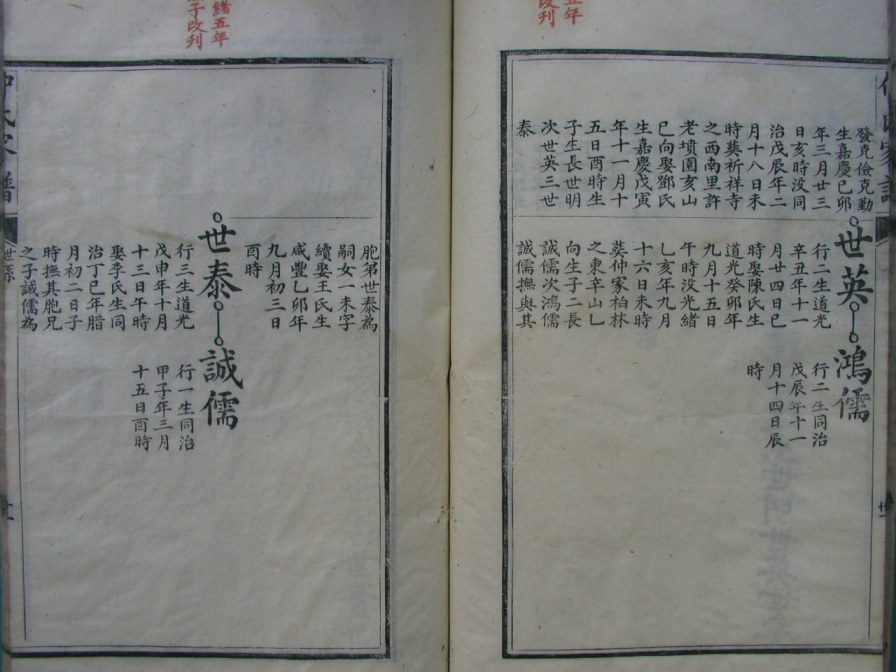 發克儉克勤
生嘉慶己卯
年三月廿三
日亥時没同
治戊辰年二
月十八日未
時葬祈祥寺
之西南里許
老墳園亥山
巳向娶鄧氏
生嘉慶戊寅
年十一月十
五日酉時生
子生長世明
次世英三世
泰
世英
行二生道光
辛丑年十一
月廿四日巳
時娶陳氏生
道光癸卯年
九月十五日
午時没光緒
乙亥年九月
十六日未時
葬仲家柏林
之東辛山乚
向生子二長
誠儒次鴻儒
誠儒撫與其
鴻儒
行二生同治
戊辰年十一
月十四日辰
時
胞弟世泰為
嗣女一未字
續娶王氏生
咸豐乙卯年
九月初三日
酉時
世泰
行三生道光
戊申年十月
十三日午時
娶李氏生同
治丁巳年腊
月初二日子
時撫其胞兄
之子誠儒為
誠儒
行一生同治
甲子年三月
十五日酉時
緒五年
子改刊
五年
改刊
氏家譜
世系